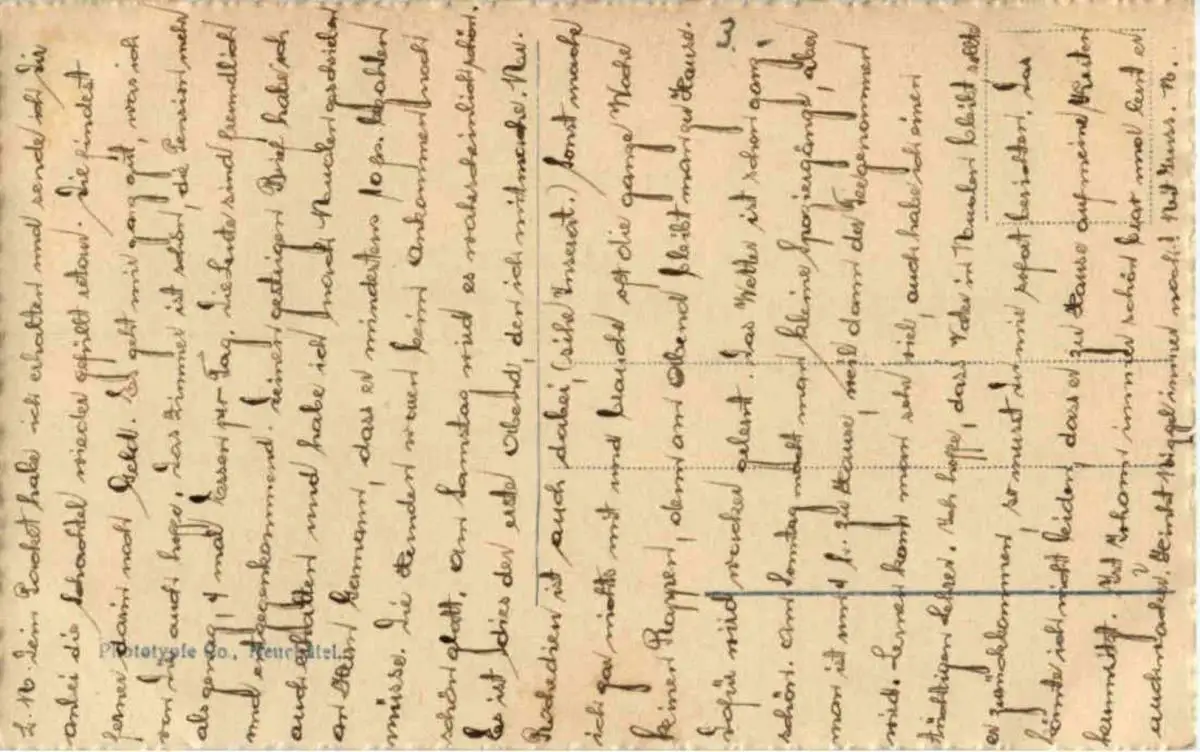 L. M. Dein Packet habe ich erhalten und sende ich Dir
anbei die Schachtel wieder gefüllt retour. Du findest
ferner darin noch Geld. Es geht mir ganz gut, was ich
von Dir auch hoffe, das Zimmer ist schön, die Pension mehr
als genug, 4 mal Essen per Tag. Die Leute sind freundlich
und entgegenkommend. Deinen gestrigen Brief habe ich
auch erhalten und habe ich nach geschrieben
an Hermann, dass er mindestens 10 frs. bezahlen
müsse. Die Hemden waren beim Ankommen noch
schön glatt. Am Samstag wird es wahrscheinlich schön.
Es ist dies der erste Abend, den ich mitmache.
Rochedieu ist auch dabei, (siehe Inserat.) Sonst mache
ich gar nichts mit und brauche oft die ganze Woche
keinen Rappen, denn am Abend bleibt man zu Hause.
Dafür wird wacker gelernt. Das Wetter ist schon ganz
schön. Am Sonntag macht man kleine Spaziergänge, aber
man ist um 4 h. zu Hause, weil dann der Tee genommen
wird. Lernen kann man sehr viel, auch habe ich einen
tüchtigen Lehrer. Ich hoffe, dass Vater in bleibt sollte
er zurückkommen, so musst Du mir sofort berichten. Das
könnte ich nicht leiden, dass er zu Hause auf meine Kosten
herumsitzt. Ist Johann immer schön brav und lernt er
auch wacker? Weint immer noch? Mit Kuss. M.
Phototypie Co., Neuchâtel.